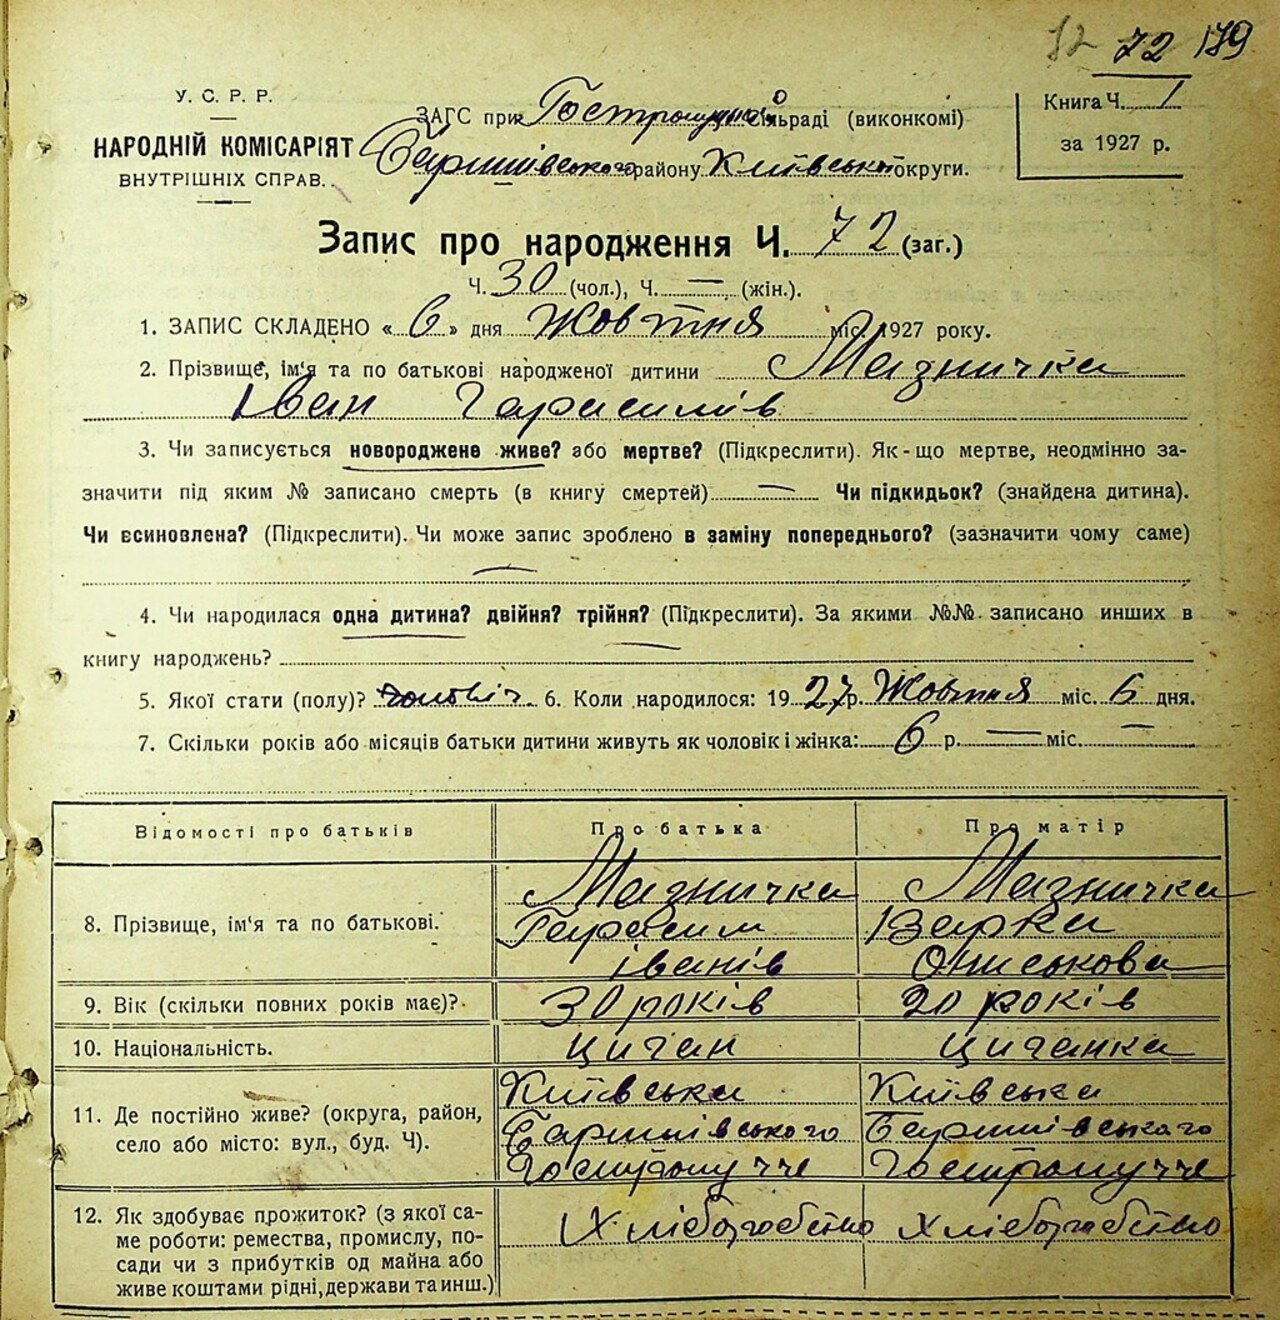 12 72 179
У. С. Р. Р.
НАРОДНІЙ КОМІСАРІЯТ
ВНУТРІШНІХ СПРАВ.
ЗАГС при Гостролуцькій сільраді (виконкомі)
Баришівського району Київської округи.
Книга Ч. 1
за 1927 р.
Запис про народження Ч. 72 (заг.)
Ч. 30 (чол.), Ч. — (жін.).
1. ЗАПИС СКЛАДЕНО « 6 » дня Жовтня міс. 1927 року.
2. Прізвище, ім'я та по батькові народженої дитини Мазничка
Іван Гарасимів
3. Чи записується новороджене живе? або мертве? (Підкреслити). Як-що мертве, неодмінно за-
значити під яким № записано смерть (в книгу смертей) — Чи підкидьок? (знайдена дитина).
Чи всиновлена? (Підкреслити). Чи може запис зроблено в заміну попереднього? (зазначити чому саме)
—
4. Чи народилася одна дитина? двійня? трійня? (Підкреслити). За якими №№ записано инших в
книгу народжень? —
5. Якої стати (полу)? чоловіч. 6. Коли народилося: 1927 р. Жовтня міс. 6 дня.
7. Скільки років або місяців батьки дитини живуть як чоловік і жінка: 6 р. — міс. —
Відомості про батьків Про батька Про матір
8. Прізвище, ім'я та по батькові. Мазничка Гарасим іванів Мазничка Варка Ониськова
9. Вік (скільки повних років має)? 30 років 20 років
10. Національність. циган циганка
11. Де постійно живе? (округа, район,
село або місто: вул., буд. Ч). Київська Баришівського Гостролуччє Київська Баришівського Гостролуччє
12. Як здобуває прожиток? (з якої са-
ме роботи: ремества, промислу, по-
сади чи з прибутків од майна або
живе коштами рідні, держави та инш.) Хліборобство Хліборобство